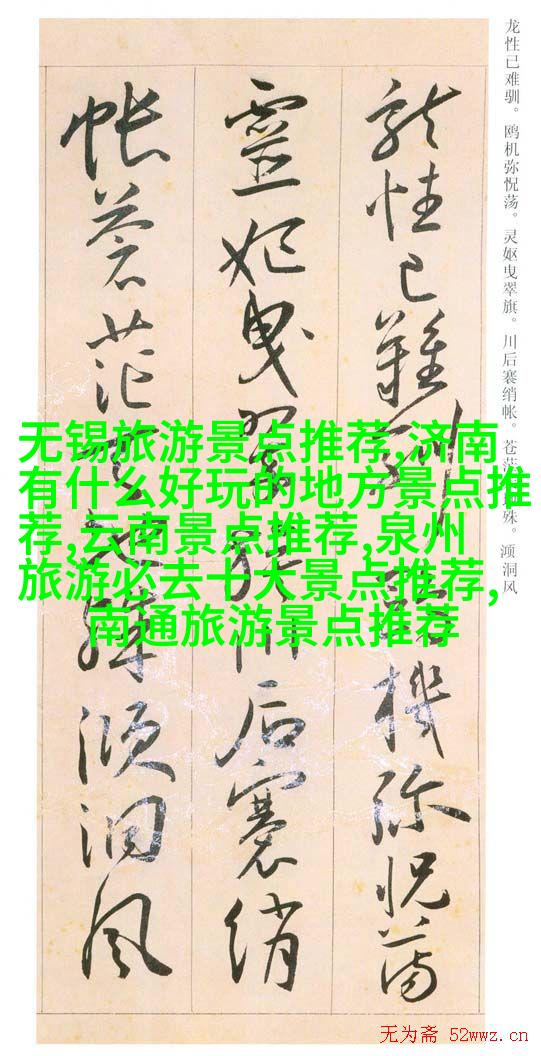 龙性已难驯。鸥机弥怳荡。灵妪曳翠旗。川后褰绡帐。苍殊。澒洞风
龍性已難機弥怳蕩
靈妃曳后褰綃
帳蒼茫殊澒洞風
无锡旅游景点推荐,济南
有什么好玩的地方景点推
荐,云南景点推荐,泉州
旅游必去十大景点推荐,
南通旅游景点推荐
无为斋 52wwz.cn